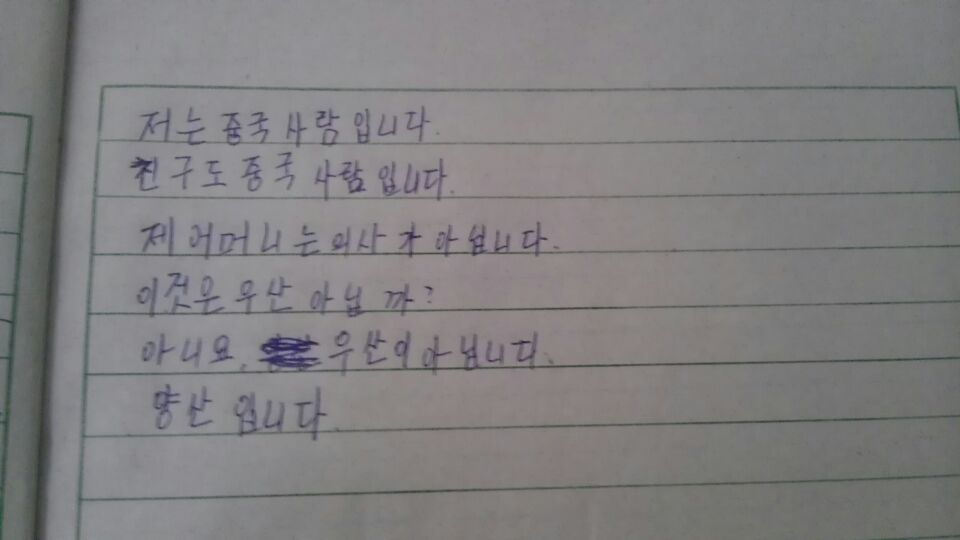 저는 중국 사람입니다.
친구도 중국 사람입니다.
제 어머니는 의사가 아닙니다.
이것은 우산 아닙까?
아니요, 우산이 아닙니다.
양산 입니다.